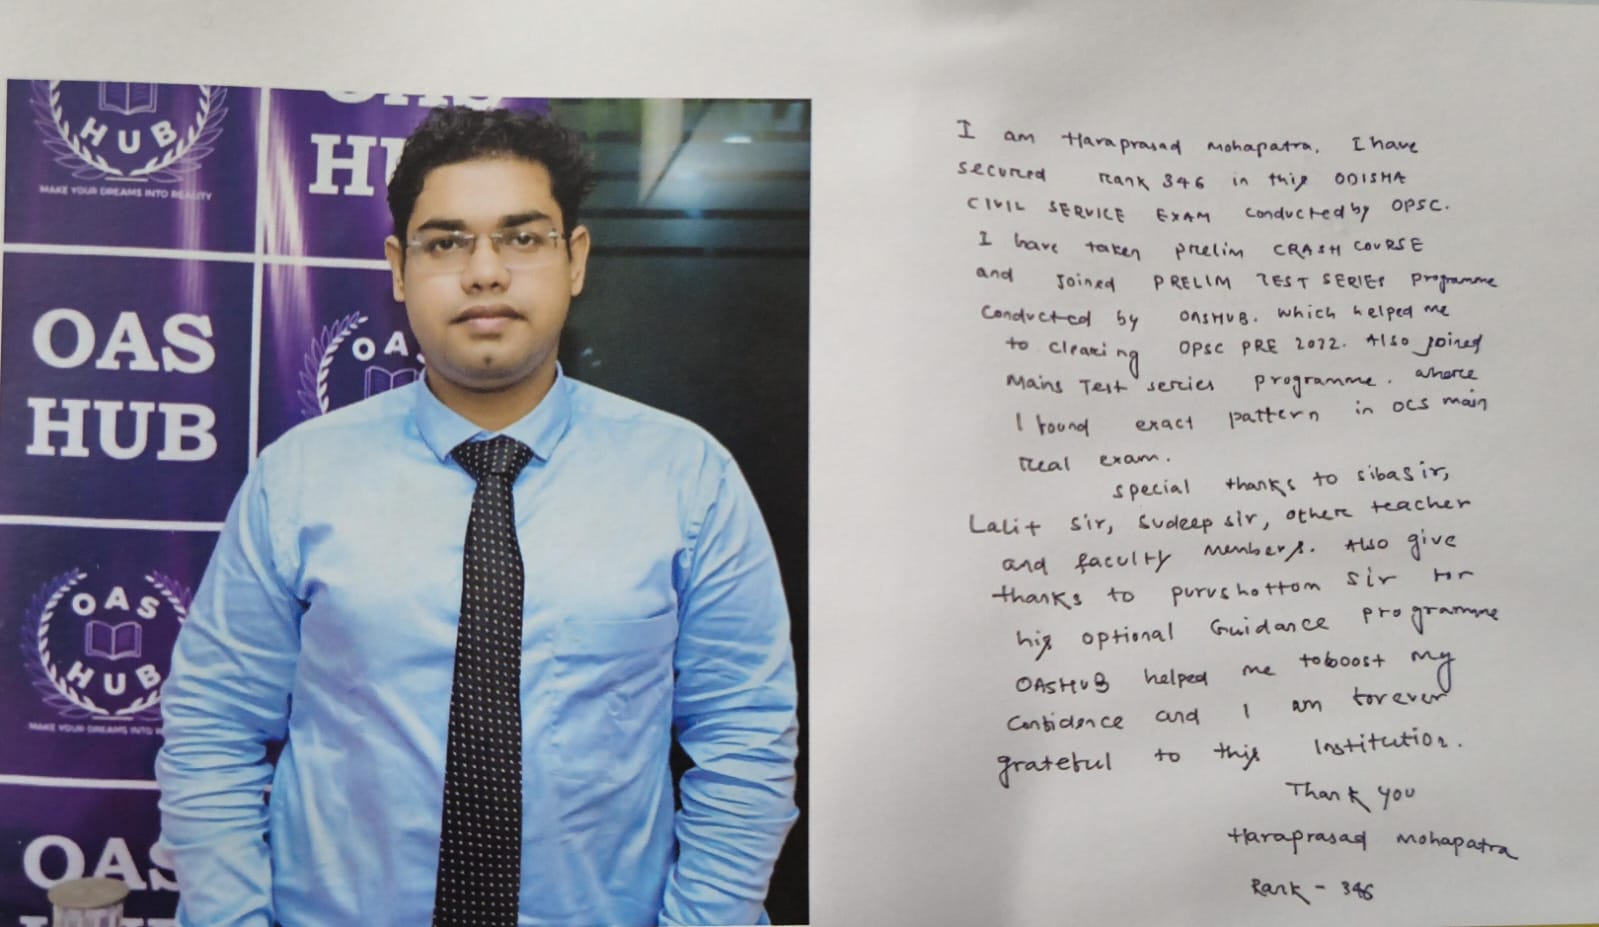 HUB
MAKE YOUR DREAMS INTO REALITY
OAS
HU
OAS
HUB
OAS
OAS
HUB
MAKE YOUR DREAMS INTO RE
OAS
I am Haraprasad Mohapatra. I have
secured rank 346 in this ODISHA
CIVIL SERVICE EXAM conducted by OPSC.
I have taken prelim CRASH COURSE
and Joined PRELIM TEST SERIES programme
conducted by OASHUB. which helped me
to clearing OPSC PRE 2022. Also joined
Mains Test series programme. where
I found exact pattern in OCS main
real exam.
special thanks to sibasir,
Lalit sir, Sudeep sir, other teacher
and faculty members. Also give
thanks to purushottom sir for
his optional Guidance programme
OASHUB helped me toboost my
confidence and I am forever
grateful to this institution.
Thank you
Haraprasad Mohapatra
Rank - 346